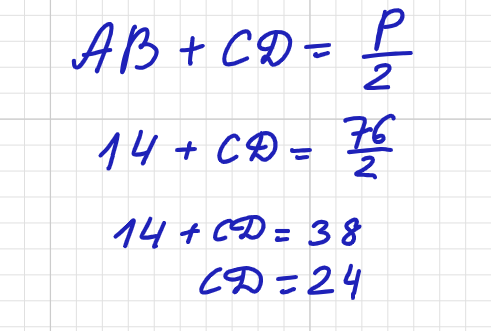 AB + CD = P/2
14 + CD = 76/2
14 + CD = 38
CD = 24